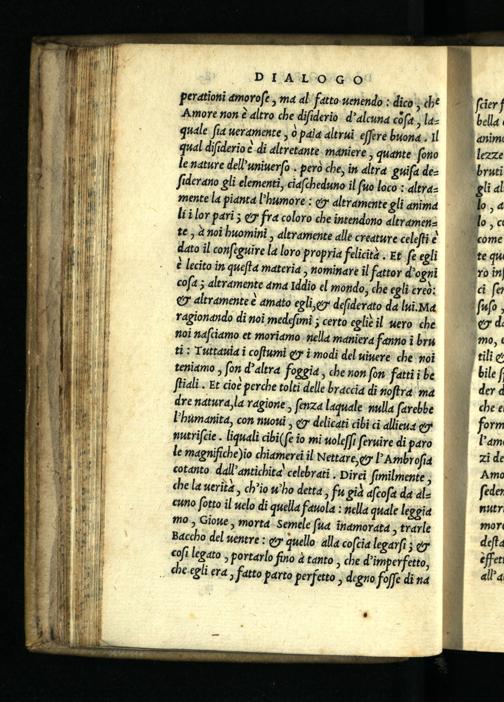 DIALOGO
perationi amorose, ma al fatto uenendo: dico, che
Amore non è altro che disiderio d'alcuna cosa, la=
quale sia ueramente, ò paia altrui essere buona. Il
qual disiderio è di altretante maniere, quante sono
le nature dell'uniuerso. però che, in altra guisa de=
siderano gli elementi, ciascheduno il suo loco: altra=
mente la pianta l'humore: & altramente gli anima
li i lor pari; & fra coloro che intendono altramen=
te, à noi huomini, altramente alle creature celesti è
dato il conseguire la loro propria felicità. Et se egli
è lecito in questa materia, nominare il fattor d'ogni
cosa; altramente ama Iddio el mondo, che egli creò:
& altramente è amato egli, & desiderato da lui. Ma
ragionando di noi medesimi; certo egli è il uero che
noi nasciamo et moriamo nella maniera fanno i bru
ti: Tuttauia i costumi & i modi del uiuere che noi
teniamo, son d'altra foggia, che non son fatti i be
stiali. Et cioè perche tolti delle braccia di nostra ma
dre natura, la ragione, senza laquale nulla sarebbe
l'humanita, con nuoui, & delicati cibi ci allieua &
nutriscie. liquali cibi (se io mi uolessi seruire di paro
le magnifiche) io chiamerei il Nettare, & l'Ambrosia
cotanto dall'antichita celebrati. Direi similmente,
che la verità, ch'io u'ho detta, fu già ascosa da al=
cuno sotto il uelo di quella fauola: nella quale leggia
mo, Gioue, morta Semele sua inamorata, trarle
Baccho del uentre: & quello alla coscia legarsi; &
cosi legato, portarlo fino à tanto, che d'imperfetto,
che egli era, fatto parto perfetto, degno fosse di na
scier
bella
anim
lezze
bruti
gli al
lo, a
lo, c
come
te qu
rò in
ci ser
suso,
& d
mo, e
tili &
bile s
der d
che e
form
l'am
zi de
Amo
seder
nutr
mor
desta
effet
all'a